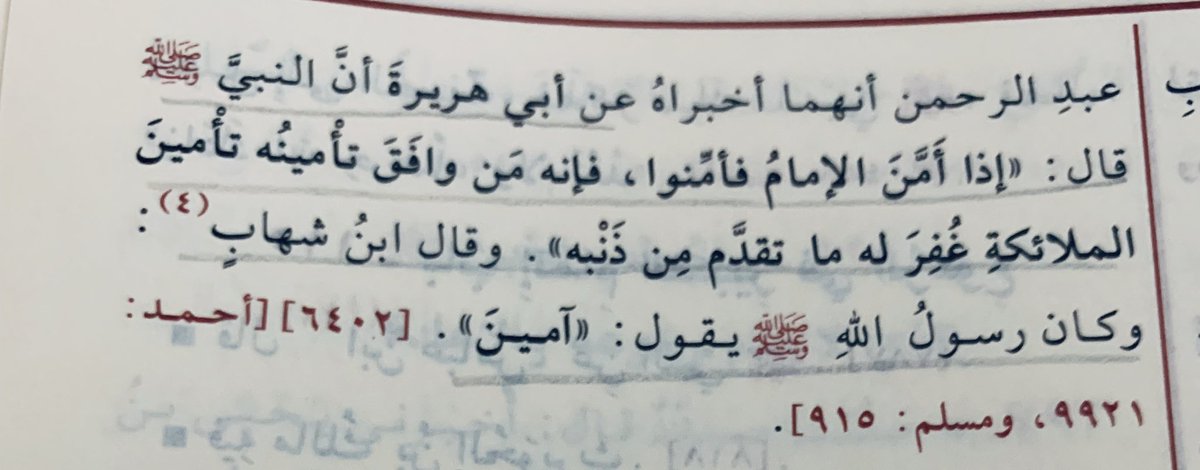 عبدِ الرحمن أنهما أخبراهُ عن أبي هريرةَ أنَّ النبيَّ ﷺ
قال: «إذا أَمَّنَ الإمامُ فأمِّنوا، فإنه مَن وافَقَ تأْمينُه تأْمينَ
الملائكةِ غُفِرَ له ما تقدَّم مِن ذَنْبه». وقال ابنُ شهابٍ(٤):
وكان رسولُ اللهِ ﷺ يقول: «آمينَ». [٦٤٠٢] [أحمد:
٩٩٢١، ومسلم: ٩١٥].